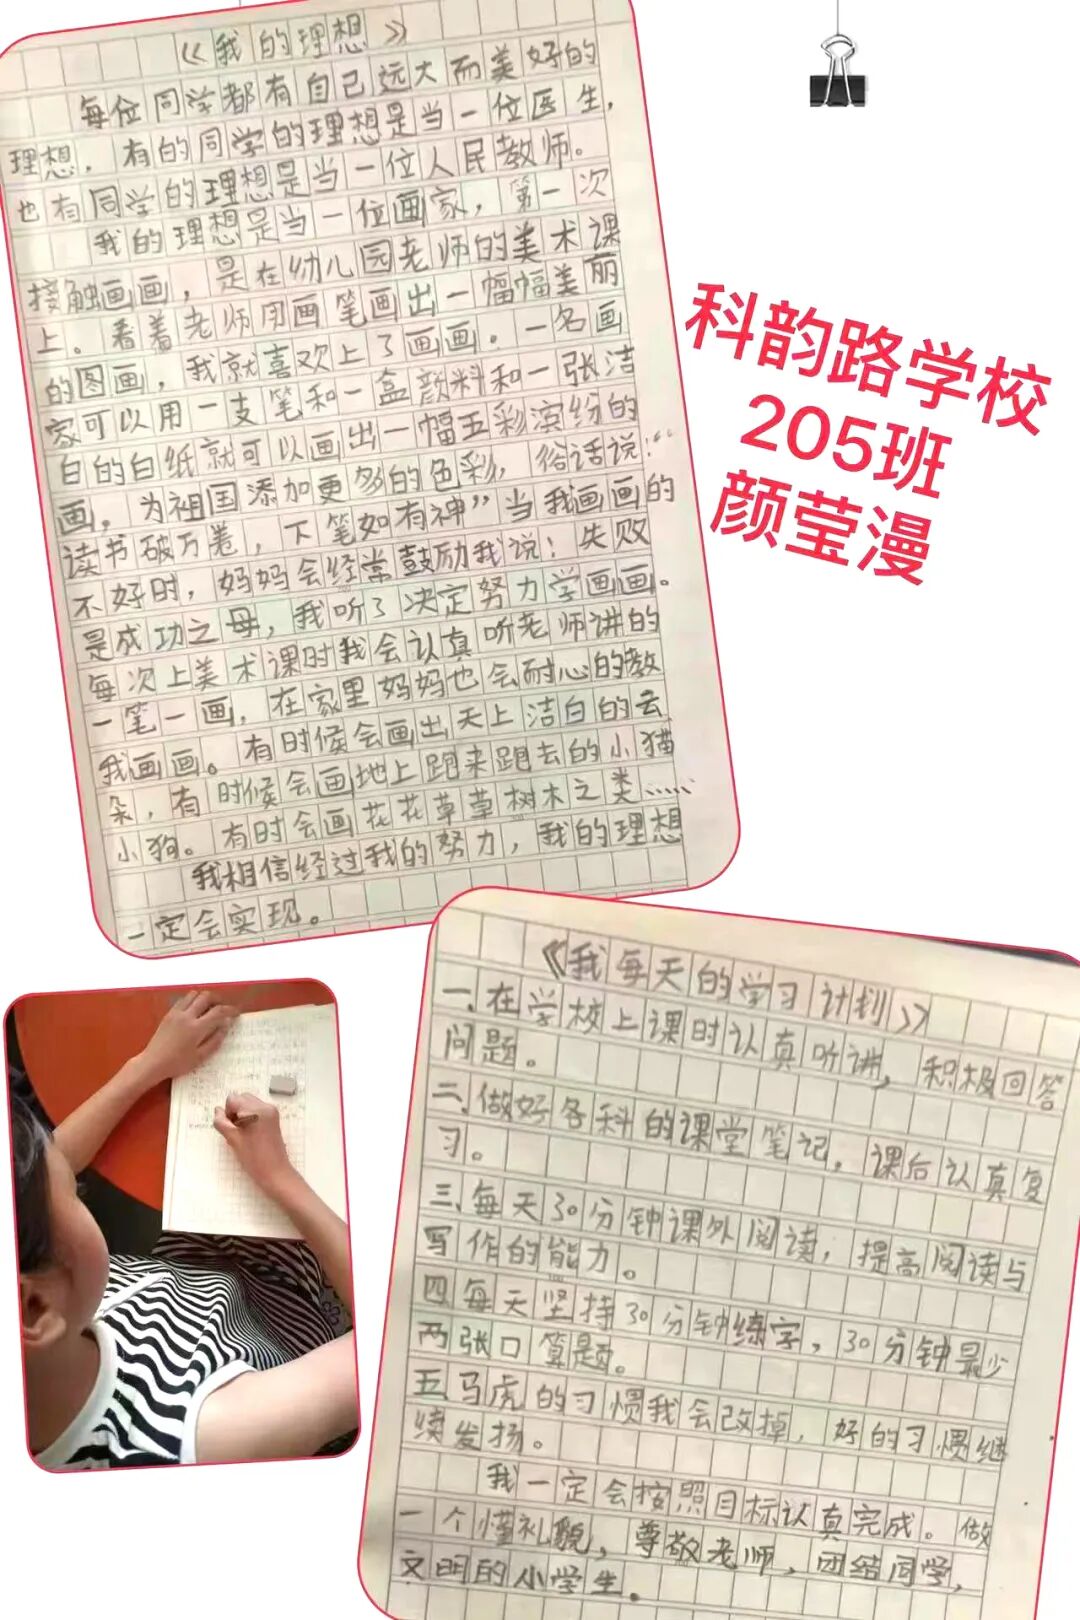 《我的理想》
每位同学都有自己远大而美好的
理想。有的同学的理想是当一位医生，
也有同学的理想是当一位人民教师。
我的理想是当一位画家，第一次
接触画画，是在幼儿园老师的美术课
上。看着老师用画笔画出一幅幅美丽
的图画，我就喜欢上了画画。一名画
家可以用一支笔和一盒颜料和一张洁
白的白纸就可以画出一幅五彩滨纷的
画，为祖国添加更多的色彩，俗话说：“
读书破万卷，下笔如有神”当我画画的
不好时，妈妈会经常鼓励我说：失败
是成功之母，我听了决定努力学画画。
每次上美术课时我会认真听老师讲的
一笔一画，在家里妈妈也会耐心的教
我画画。有时候会画出天上洁白的云
朵，有时候会画地上跑来跑去的小猫
小狗。有时会画花花草草树木之类……
我相信经过我的努力，我的理想
一定会实现。
科韵路学校
205班
颜莹漫
《我每天的学习计划》
一.在学校上课时认真听讲，积极回答
问题。
二.做好各科的课堂笔记，课后认真复
习。
三.每天30分钟课外阅读，提高阅读与
写作的能力。
四每天坚持30分钟练字，30分钟最少
两张口算题。
五.马虎的习惯我会改掉，好的习惯继
续发扬。
我一定会按照目标认真完成。做
一个懂礼貌，尊敬老师，团结同学，
文明的小学生。